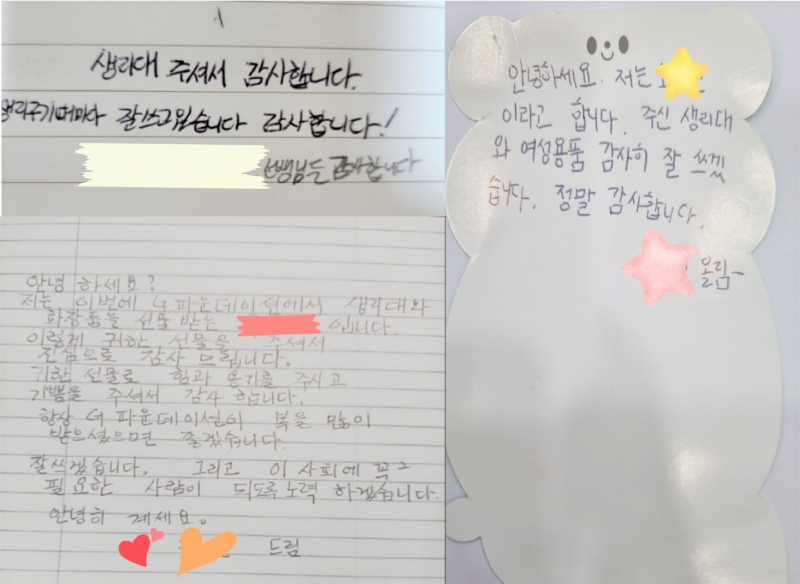 생리대 주셔서 감사합니다.
생리주기때마다 잘쓰고있습니다 감사합니다!
선쌩님들 감사합니다
안녕하세요. 저는
이라고 합니다. 주신 생리대
와 여성용품 감사히 잘 쓰겠
습니다. 정말 감사합니다.
올림-
안녕 하세요?
저는 이번에 G 파운데이션에서 생리대와
화장품을 선물 받은 입니다.
이렇게 귀한 선물을 주셔서
진심으로 감사 드립니다.
귀한 선물로 힘과 온기를 주시고
기쁨을 주셔서 감사 합니다.
항상 G 파운데이션이 복을 많이
받으셨으면 좋겠습니다.
잘쓰겠습니다. 그리고 이 사회에 꼭
필요한 사람이 되도록 노력 하겠습니다.
안녕히 계세요.
드림